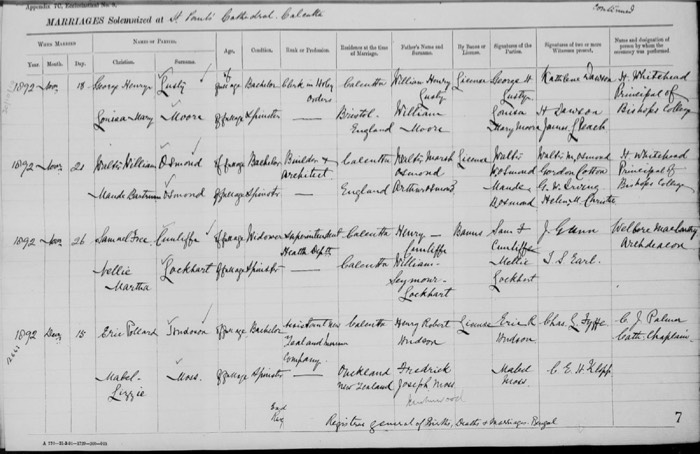 Appendix 10, Ecclesiastical No. 8.
Continued
MARRIAGES Solemnized at St. Paul's Cathedral, Calcutta
WHEN MARRIED NAMES OF PARTIES. Age. Condition. Rank or Profession. Residence at the time of Marriage. Father's Name and Surname. By Banns or License. Signatures of the Parties. Signatures of two or more Witnesses present. Name and designation of person by whom the ceremony was performed
Year. Month. Day. Christian. Surname.
1892 Nov. 18 George Henry Lusty of full age Bachelor Clerk in Holy Orders Calcutta William Henry Lusty License George H. Lusty Kathleen Dawson H. Whitehead Principal of Bishops College
Louisa Mary Moore of full age Spinster Bristol England William Moore Louisa Mary Moore H Dawson James
1892 Nov. 21 William Osmond of full age Bachelor Builder & Architect Calcutta Walter Marsh Osmond License Walter Osmond Gordon Cotton H. Whitehead Principal of Bishops College
Maude Osmond of full age Spinster England Arthur Osmond Maude Osmond Helen Christie
1892 Nov. 26 Samuel Cunliffe of full age Widower Superintendent Health Deptt. Calcutta Henry Cunliffe Banns Sam Cunliffe J Archdeacon
Nellie Martha Lockhart of full age Spinster Calcutta William Seymour Lockhart Nellie Lockhart Earl.
1892 15 Eric Pollard of full age Bachelor Assistant New Zealand Insurance Company Calcutta Henry Robert Hudson License Eric R Hudson Chas. Fyffe C. J. Palmer Cath. Chaplain
Mabel Lizzie Moss. of full age Spinster Auckland New Zealand Fredrick Joseph Moss Mabel Moss. C E H
Registrar general of Births, Deaths & Marriages. Bengal
7